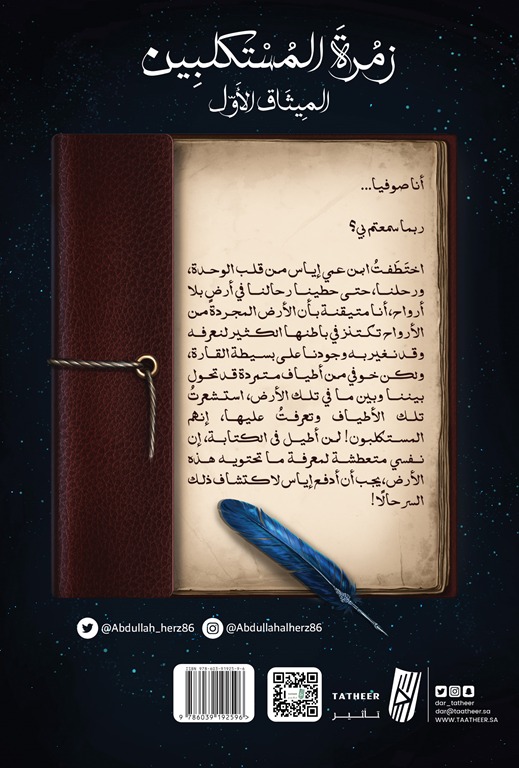 زمُرةَ المُسْتكلبِين
الميثَاق الأوّل
أنا صوفيا...
ربما سمعتم بي؟
اختَطَفتُ ابن عمي إياس من قلب الوحدة،
ورحلنا، حتى حطينا رحالنا في أرضٍ بلا
أرواح، أنا متيقنة بأن الأرض المجردة من
الأرواح تكتنز في باطنها الكثير لنعرفه
وقد نغير به وجودنا على بسيطة القارة،
ولكن خوفي من أطياف متمردة قد تحول
بيننا وبين ما في تلك الأرض، استشعرتُ
تلك الأطياف وتعرفتُ عليها، إنهم
المستكلبون! لن أطيل في الكتابة، إن
نفسي متعطشة لمعرفة ما تحتويه هذه
الأرض، يجب أن أدفع إياس لاكتشاف ذلك
السر حالًا!
@Abdullah_herz86 @Abdullahalherz86
ISBN 978-603-91925-9-6
9 786039 192596 >
TATHEER
تأثير
dar_tatheer
dar@taatheer.sa
WWW.TAATHEER.SA